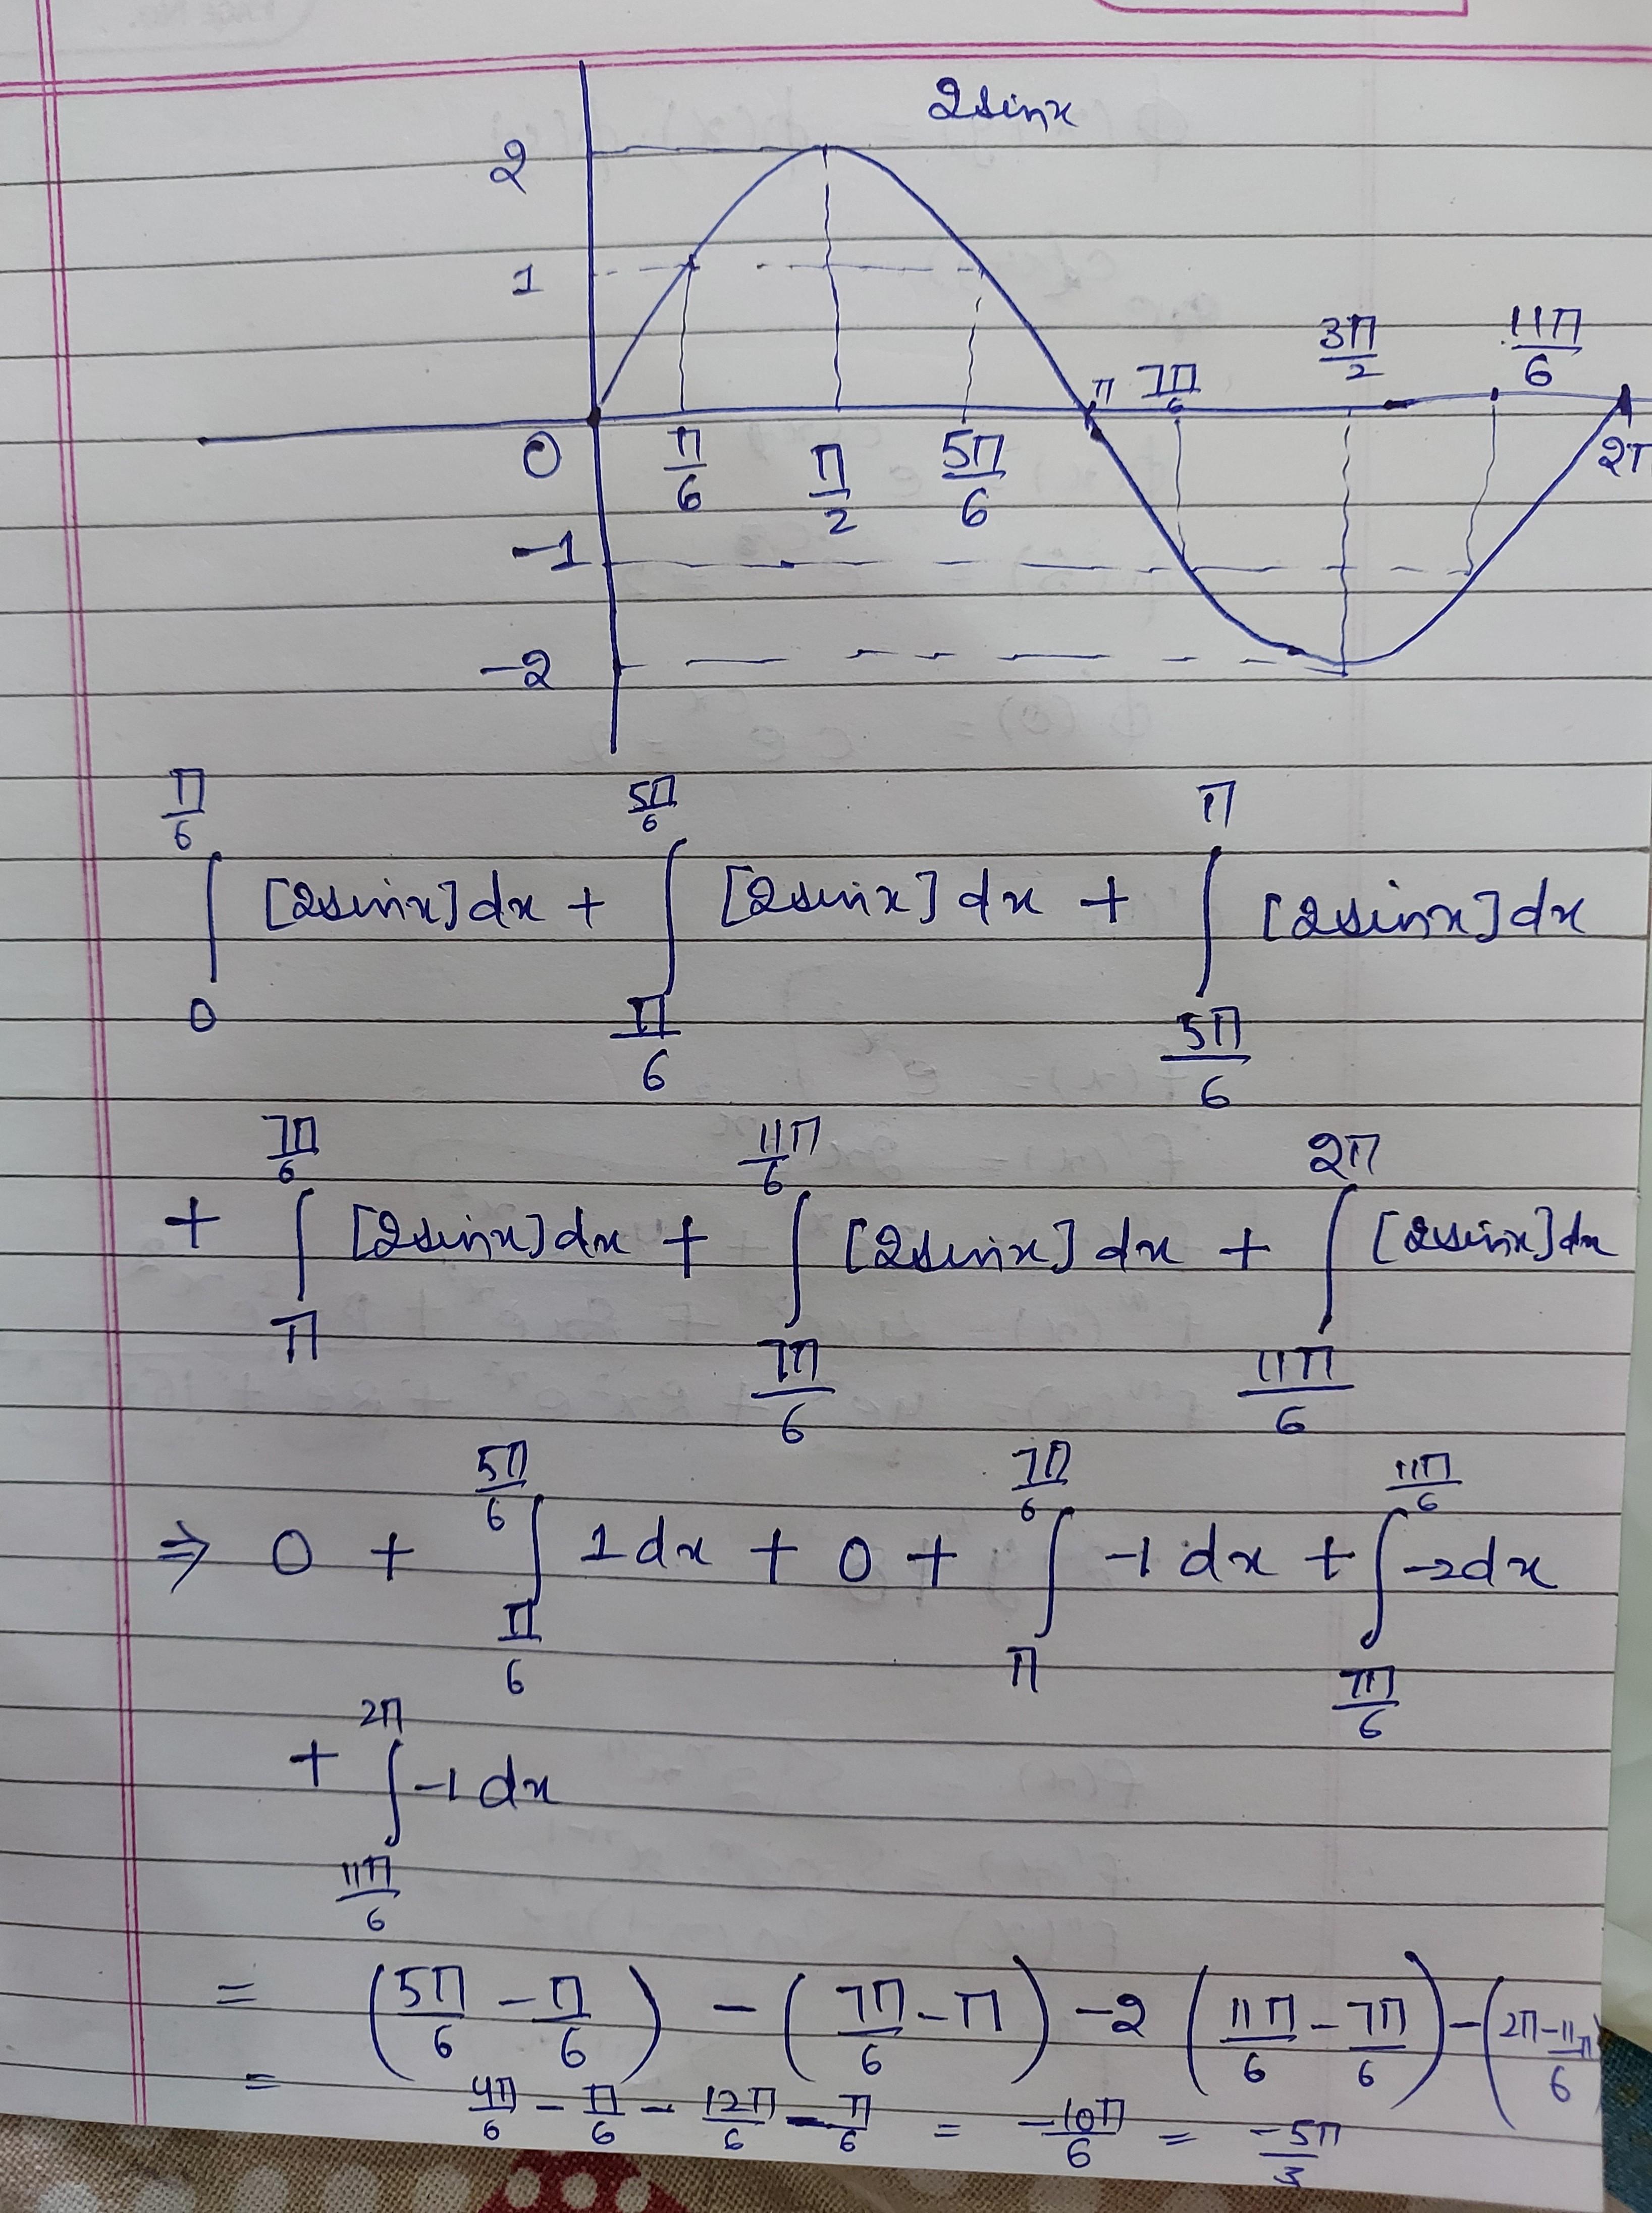 2sinx
2
1
0
-1
-2
π/6 π/2 5π/6 π 7π/6 3π/2 11π/6 2π
∫_0^{π/6} [2sinx]dx + ∫_{π/6}^{5π/6} [2sinx]dx + ∫_{5π/6}^{π} [2sinx]dx
+ ∫_{π}^{7π/6} [2sinx]dx + ∫_{7π/6}^{11π/6} [2sinx]dx + ∫_{11π/6}^{2π} [2sinx]dx
⇒ 0 + ∫_{π/6}^{5π/6} 1dx + 0 + ∫_{π}^{7π/6} -1dx + ∫_{7π/6}^{11π/6} -2dx
+ ∫_{11π/6}^{2π} -1dx
= (5π/6 - π/6) - (7π/6 - π) -2 (11π/6 - 7π/6) - (2π - 11π/6)
= 4π/6 - π/6 - 12π/6 - π/6 = -10π/6 = -5π/3